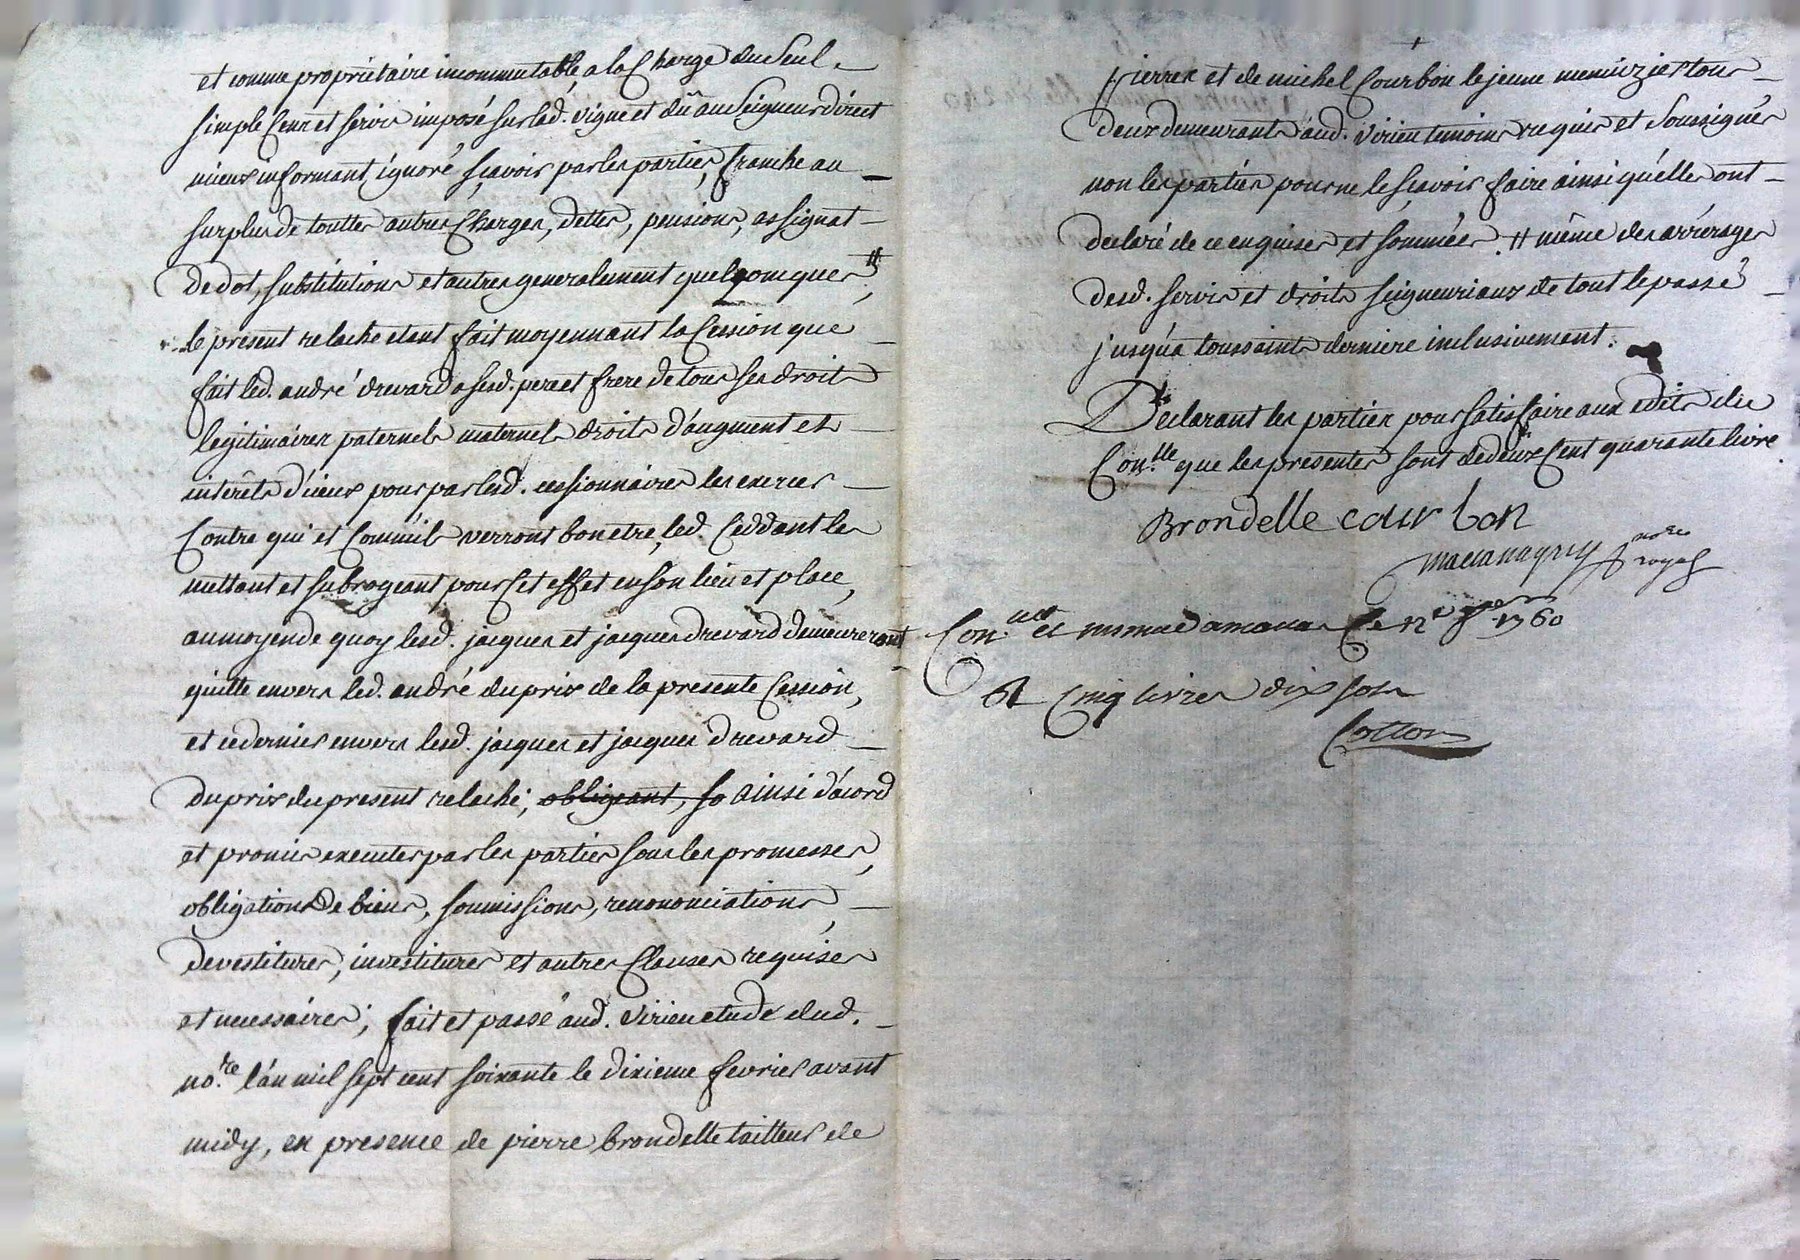 et comme proprietaire incommutable, a la Charge du Seul
simple Cens et servis imposé sur lad. vigne et dû au Seigneur direct
mieux informant ignoré sçavoir par les parties, franche au
surplus de touttes autres Charges, dettes, pensions, assignat
de dot, substitutions et autres generalement quelqonques #,
le present relache etant fait moyennant la Cession que
fait led. andré drevard a sesd. pere et frere de tous ses droits
legitimaires paternels maternels droits d'augment et
intérêts d'iceux pour par lesd. cessionnaires les exercer
Contre qui et Comm'ils verront bon etre, led. Ceddant les
mettant et subrogeant pour Cet effet en son lieu et place,
au moyen de quoy lesd. jacques et jacques drevard demeureront
quitte envers led. andré du prix de la presente Cession,
et ce dernier envers lesd. jacques et jacques drevard
du prix du present relache; obligeant, so ainsi d'acord
et promis executer par les parties sous les promesses,
obligations de biens, soumissions, renonciations,
devestitures, investitures et autres Clauses requises
et necessaires; fait et passé aud. Virieu etude dud.
no.re l'an mil sept cent soixante le dixieme fevrier avant
midy, en presence de pierre brondelle tailleur de
pierres et de michel Courbon le jeune menuizier tous
deux demeurants aud. Virieu temoins requis et soussignés
non les parties pour ne le sçavoir faire ainsi qu'elles ont
declaré de ce enquises et sommées. # même des arrérages
desd. servis et droits seigneuriaux de tout le passé
jusqu'a toussaints derniere inclusivement.
Declarant les parties pour satisfaire aux edits du
Con.lle que les presentes sont de deux Cent quarante livre
Brondelle courbon
no.re
royal
Con.lle et
Ce 12e 1760
Rt Cinq livres dix sols
Cotton